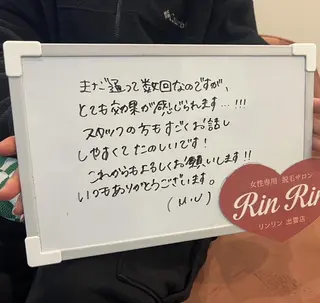 Columbia
まだ通って数回なのですが、
とても効果が感じられます…!!!
スタッフの方もすごくお話し
しやすくてたのしいです!
これからもよろしくお願いします!!
いつもありがとうございます。
(U.U)
女性専用 脱毛サロン
Rin Rin
リンリン 出雲店